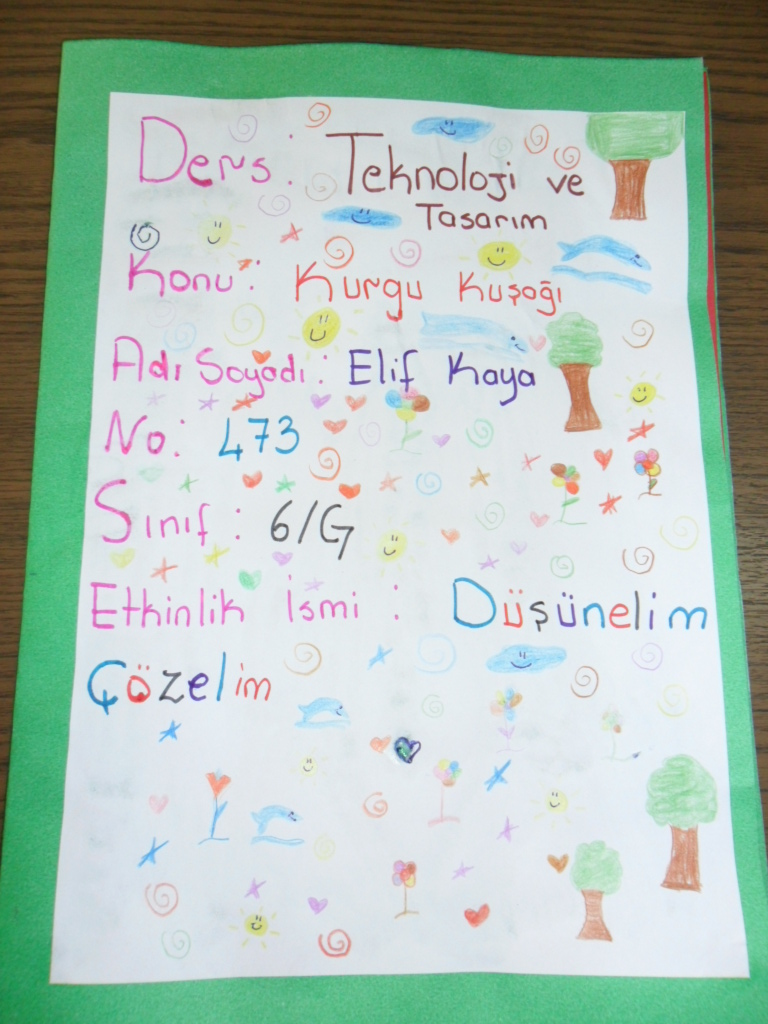 Ders: Teknoloji ve
Tasarım
Konu: Kurgu Kuşağı
Adı Soyadı: Elif Kaya
No: 473
Sınıf: 6/G
Etkinlik İsmi: Düşünelim
Çözelim